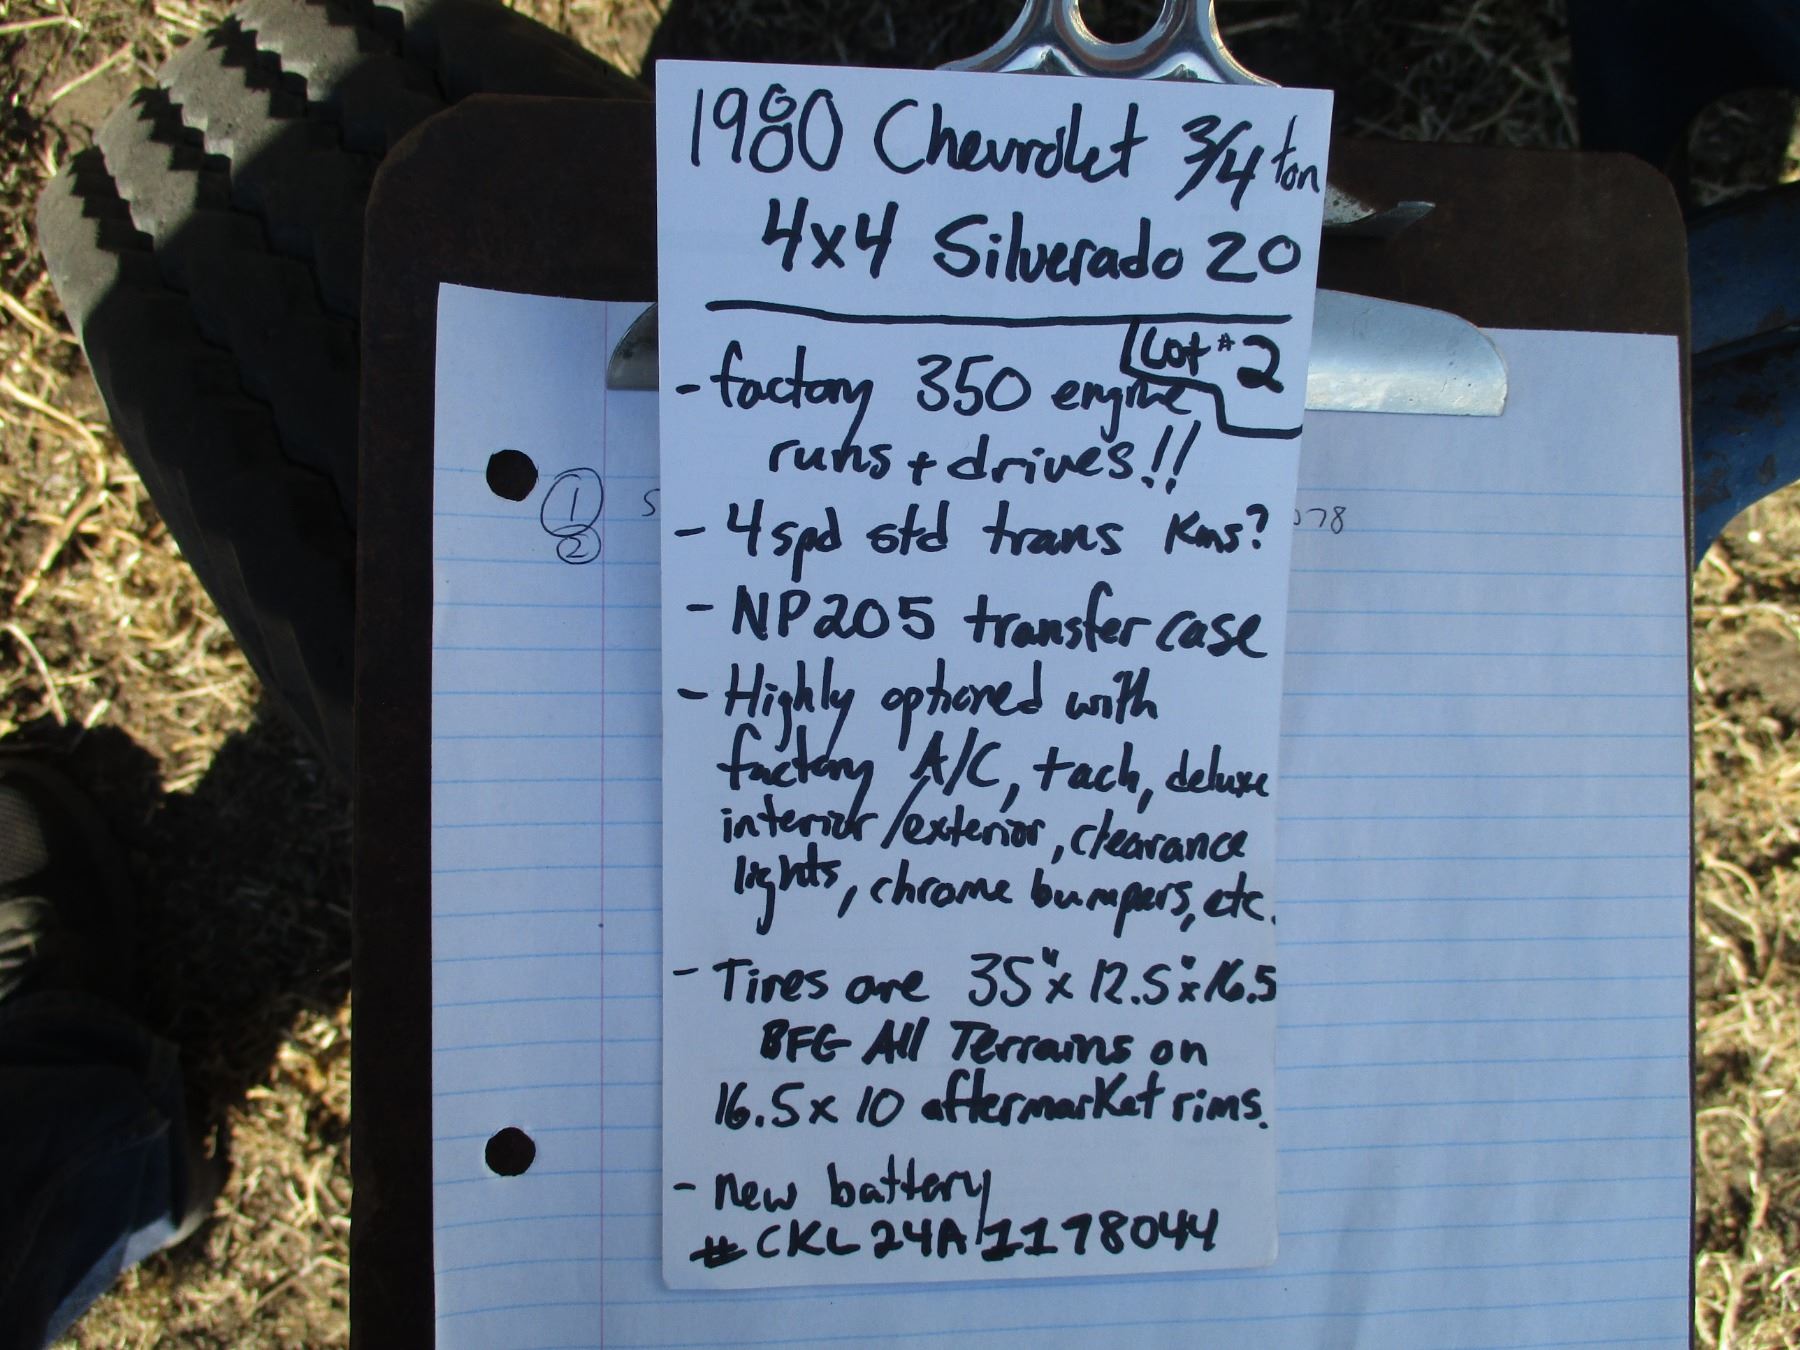 1980 Chevrolet 3/4 ton
4x4 Silverado 20
Lot # 2
- factory 350 engine
runs + drives!!
- 4 spd std trans Kms?
- NP205 transfer case
- Highly optioned with
factory A/C, tach, deluxe
interior/exterior, clearance
lights, chrome bumpers, etc.
- Tires are 35" x 12.5" x 16.5
BFG All Terrains on
16.5 x 10 aftermarket rims.
- new battery
# CKL24A1178044
1 S
2
078